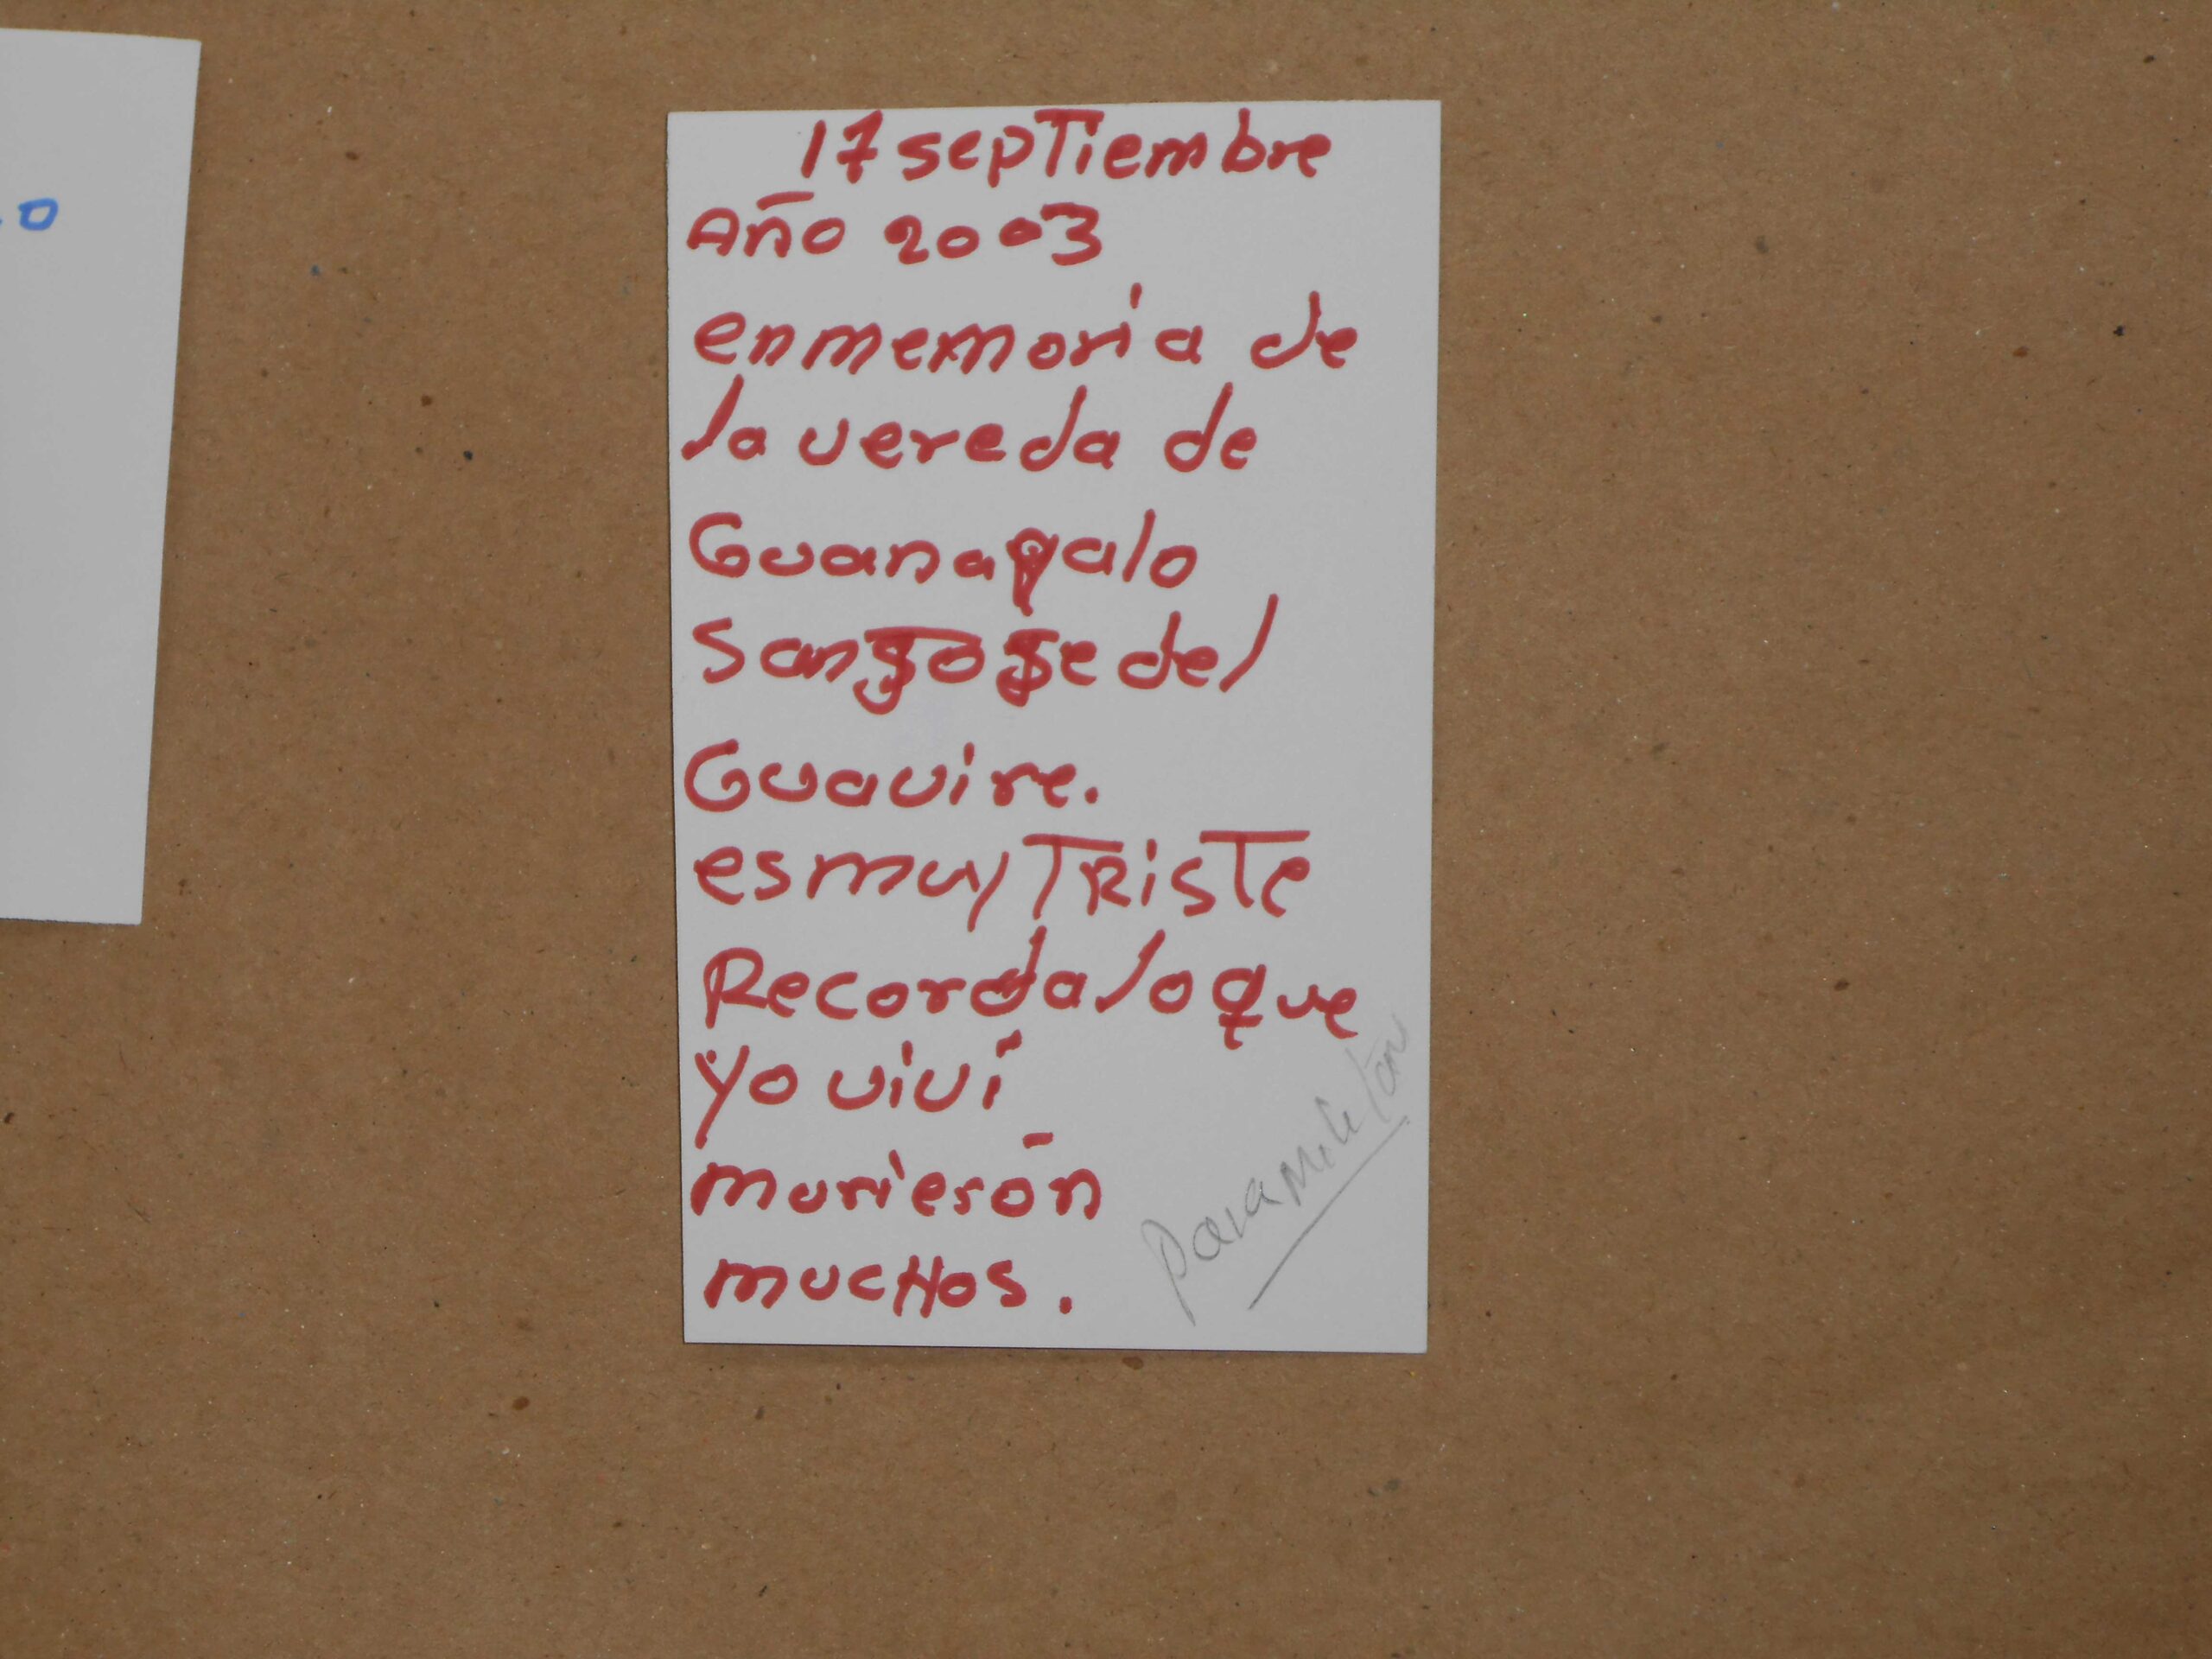 17 septiembre
Año 2003
en memoria de
la vereda de
Guanapalo
San Jose del
Guavire.
es muy TRiste
Recorda lo que
yo viví
murierón
mucHos.
paramilitar